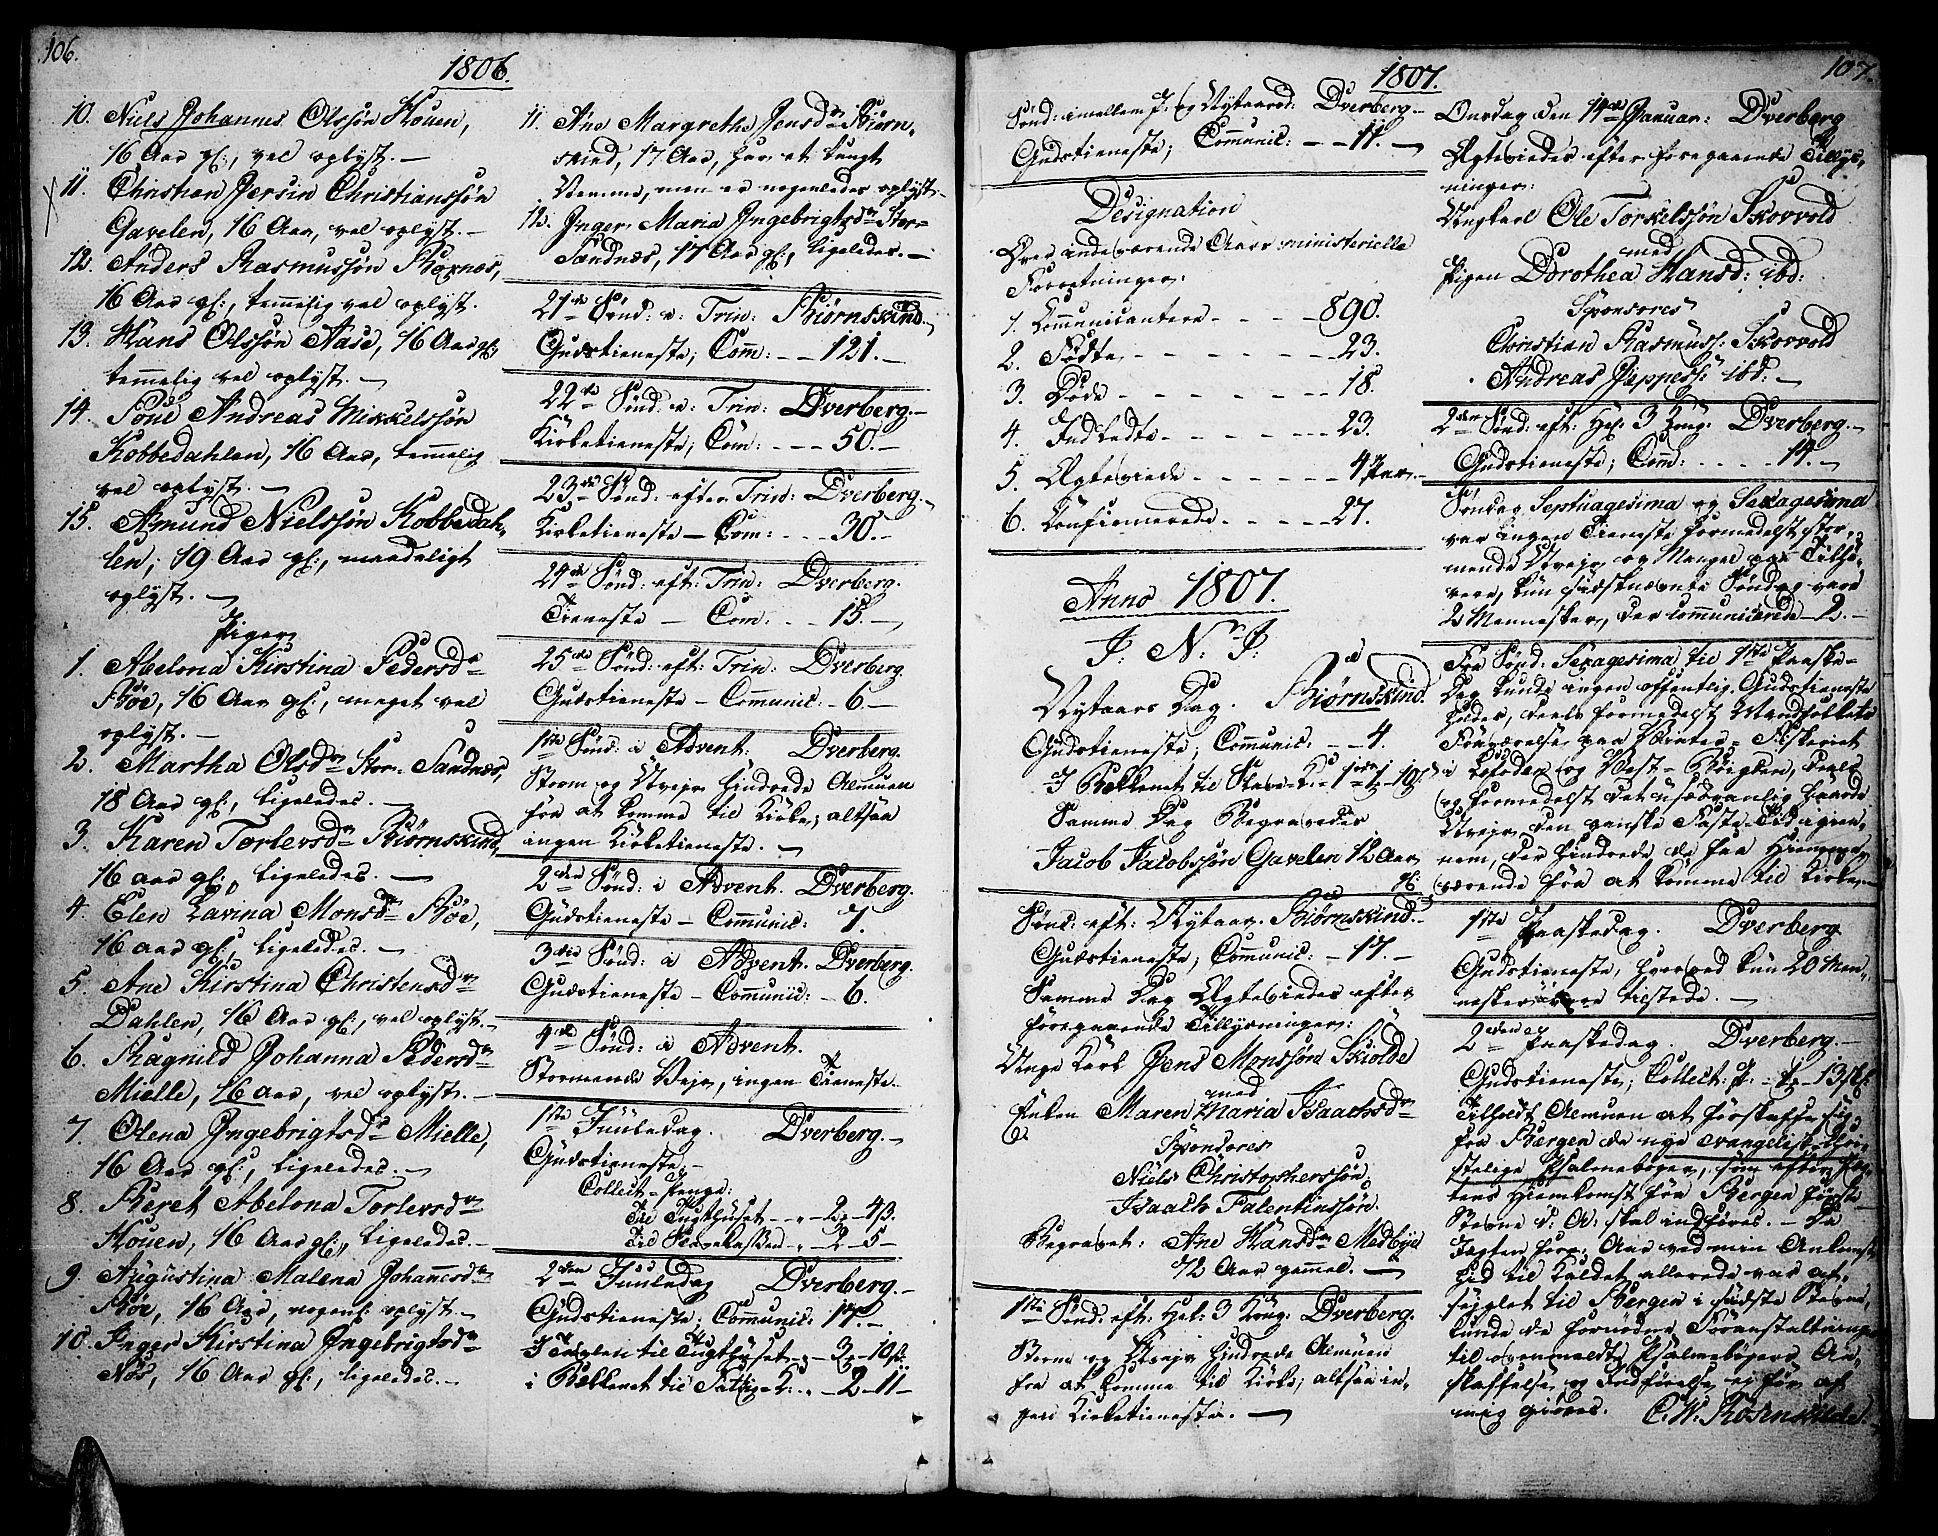 106.
1806.
10. Niels Johannes Olssøn Kouen,
16 Aar gl:, vel oplyst. —
11. Christian Jersin Christianssøn
Gavelen, 16 Aar, vel oplyst. —
12. Anders Rasmussøn
16 Aar gl:, temmelig vel oplyst.
13. Hans Olssøn Aase, 16 Aar gl:
temmelig vel oplyst. —
14. Poul Andreas Mikkelssøn
Kobbedahlen, 16 Aar, temmelig
vel oplyst. —
15. Amund Nielssøn Kobbedah-
len, 19 Aar gl:, maadeligt
oplyst. —
Piger
1. Abelona Kirstina Pedersd:
Bøe, 16 Aar gl:, meget vel
oplyst. —
2. Martha Olsd: Stor-Sandnæs,
18 Aar gl:, ligeledes. —
3. Karen Torlevsd: Biørnskind,
16 aar gl:, ligeledes. —
4. Elen Lavina Monsd: Bøe,
16 aar gl:, ligeledes. —
5. Ane Kirstina Christensd:
Dahlen, 16 Aar gl:, vel oplyst. —
6. Ragnild Johanna Pedersd:
Mielle, 16 Aar, vel oplyst. —
7. Olena Ingebrigtsd: Mielle,
16 Aar gl:, ligeledes. —
8. Beret Abelona Torlevsd:
Kouen, 16 Aar gl:, ligeledes. —
9. Augustina Malena Johannesd:
Bøe, 16 Aar, nogenl: oplyst —
10. Inger Kirstina Ingebrigtsd:
Nøs, 16 Aar gl:, ligeledes. —
11. Ane Margrethe Jensd: Biørn-
skind, 17 Aar, har et tungt
Nemme, men er nogenledes oplyst.
12. Inger Maria Ingebrigtsd: Stor-
Sandnæs, 17 Aar gl:, ligeledes. —
21de Sønd: e: Trin: Biørnskind. —
Gudstieneste; Com: — 121. —
22de Sønd: e: Trin: Dverberg. —
Kirketieneste; Com: — 50. —
23de Sønd: efter Trin: Dverberg. —
Kirketieneste — Com: — 30. —
24de Sønd: eft: Trin: Dverberg.
Tieneste — Com: — 15. —
25de Sønd: eft: Trin: Dverberg
Gudstieneste — Communic: — 6 —
1ste Sønd: i Advent: Dverberg.
Storm og Uveir hindrede Almuen
fra at komme til Kirke; altsaa
ingen Kirketieneste. —
2den Sønd: i Advent. Dverberg.
Gudstieneste — Communic: 7.
3die Sønd: i Advent. Dverberg.
Gudstieneste — Communic: — 6.
4de Sønd: i Advent.
Stormende Veir, ingen Tieneste.
1ste Juuledag. Dverberg. —
Gudstieneste. —
Collect-Penge:
Til Tugthuset — „ — 2 — 4 β.
Til Skolekassen „ — 2 — 5 —
2den Juuledag Dverberg. —
Gudstieneste; Communic: 17. —
I Tavlen til Tugthuset „ — 2 — 10 β
i Bækkenet til Fattig-K: „ — 2 — 11 —
1807. 107.
Sønd: imellem J: og Nytaarsd: Dverberg —
Gudstieneste; Communic: — 11. —
Designation
Over indeværende Aars ministerielle
Forretninger:
1. Communicantere — 890.
2. Fødte — 23.
3. Døde — 18.
4. Indledte — 23.
5. Ægteviede — 4 Par. —
6. Confirmerede — 27.
Anno 1807.
I: N: J:
Nytaars Dag. Biørnskind.
Gudstieneste; Communic: — 4.
Samme Dag Begravedes
Jacob Jacobssøn Gavelen 12 Aar
gl:
Sønd: eft: Nytaar. Biørnskind. —
Gudstieneste; Communic: — 17. —
Samme Dag Ægteviedes efter
foregaaende Tillysninger:
Unge Karl Jens Monssøn Skiolde
med
Enken Maren Maria Isaachsd:
Sponsores
Niels Christopherssøn
Isaach Falentinssøn.
Begravet: Ane Hansd: Medbye
72 Aar gammel. —
1ste Sønd: eft: Hel: 3 Kong: Dverberg.
Storm og Uveir hindrede Almuen
fra at komme til Kirke; altsaa in-
gen Kirketieneste. —
Onsdag den 14de Januar: Dverberg
Ægteviedes efter foregaaende Tillys-
ninger:
Ungkarl Ole Torkelssøn Skovvold
med
Pigen Dorothea Hansd: ibd:
Sponsores
Christian Rasmuss: Skovvold
Andreas Jeppess: ibd: —
2den Sønd: eft: Hel: 3 Kong: Dverberg. —
Gudstieneste; Com: — 14. —
Søndag Septuagesima og Sexagesima
var ingen Tieneste formedelst stor-
mende Uveir og Mangel paa Tilhø-
rere, kun sidstnævnte Søndag vare
2 Mennesker, der communicerede — 2. —
Fra Sønd: Sexagesima til 1ste Paaske-
Dag kunde ingen offentlig Gudstieneste
holdes, deels formedelst Mandfolkets
Fraværelse paa Vinter-Fiskeriet
i Lofoden og Vest-Vaagen, deels
og formedelst det usædvanlig haarde
Uveir den ganske Faste-Tid igien-
nem, der hindrede de faa Hiemme-
værende fra at komme til Kirke. —
1ste Paaskedag. Dverberg
Gudstieneste, hvorved kun 20 Men-
nesker vare tilstede. —
2den Paaskedag. Dverberg. —
Tilholdt Almuen at forskaffe sig
fra Bergen de nye evangelisk-Chri-
stelige Psalmebøger, som efter Jæg-
ters Hiemkomst fra Bergen første
Stevne d: A: skal indføres. — Da
Jagten forr: Aar ved min Ankomst
hid til Kaldet allerede var af-
seyglet til Bergen i sidste Stevne,
kunde de fornødne Foranstaltninger
til ovenmeldte Psalmebøgers An-
skaffelse og Indførelse ej før af
mig giøres. C. W. Rosenvilde.